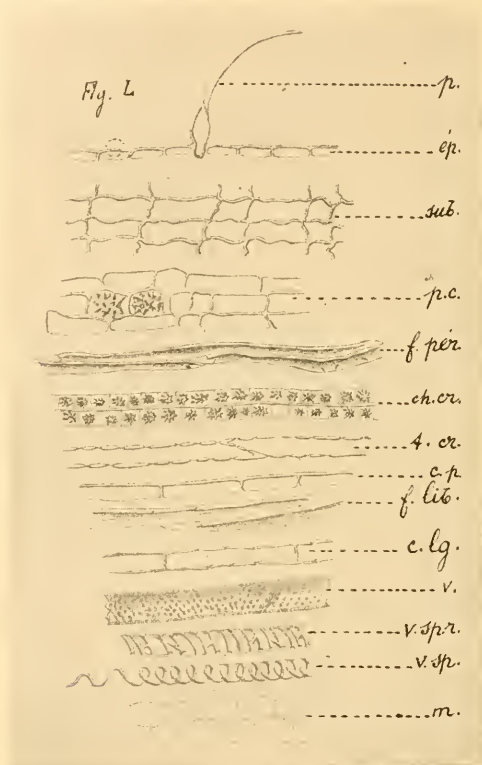 Fig. L
p.
ép.
sub.
p.c.
f. pér.
ch.cr.
t. cr.
c.p.
f. lib.
c. lg.
v.
v.sp.r.
v.sp.
m.